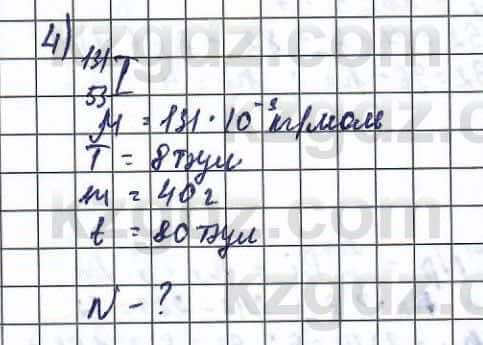 4)
¹³¹₅₃I
M = 131 · 10⁻³ кг/моль
T = 8 тәул
m = 40 г
t = 80 тәул
N - ?
kzgdz.com